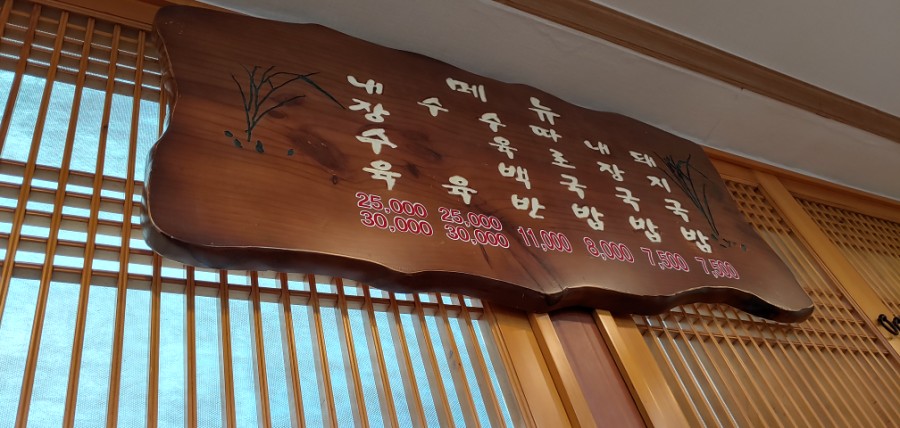 메뉴
내장수육
25,000
30,000
수육
25,000
30,000
수육백반
11,000
따로국밥
8,000
내장국밥
7,500
돼지국밥
7,500